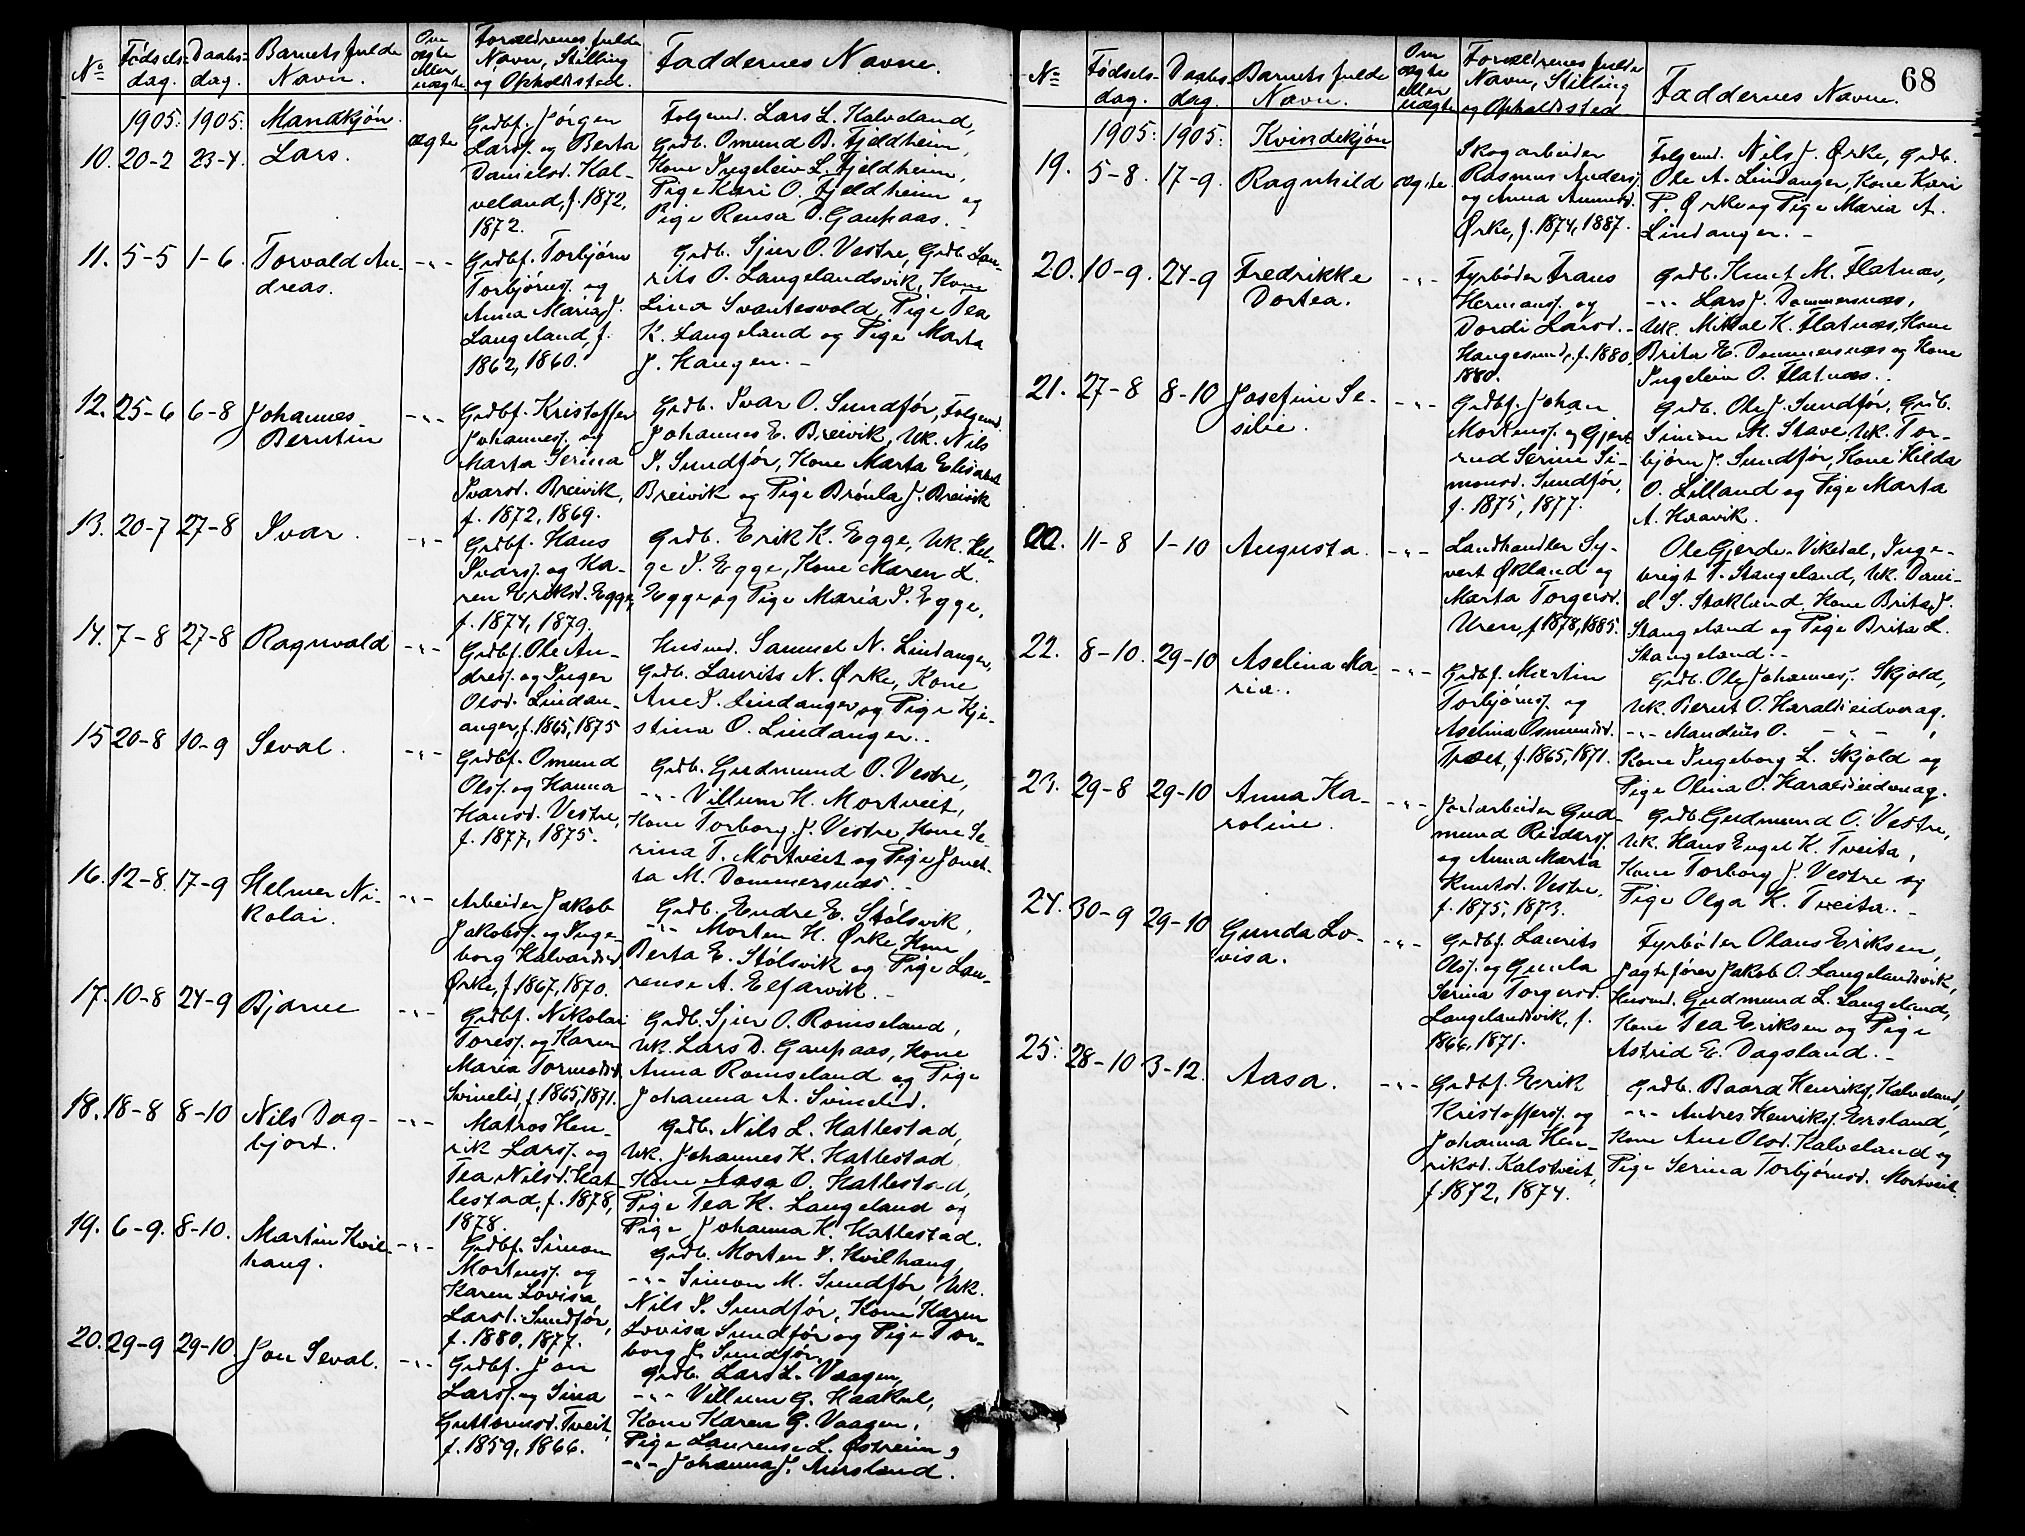 No
Fødsels-
dag.
Daabs-
dag.
Barnets fulde
Navn.
Om
ægte
eller
uægte
Forældrenes fulde
Navn, Stilling
og Opholdssted.
Faddernes Navne.
1905.
1905.
Mandkjøn.
10. 20-2
23-4
Lars.
ægte
Grdbf. Jørgen
Larss. og Berta
Danielsd. Kal-
veland, f. 1872,
1872.
Folgemd. Lars L. Kalveland,
Grdb. Omund B. Fjeldheim,
Kone Ingeleiv L. Fjeldheim,
Pige Kari O. Fjeldheim og
Pige Rensa D. Gaupaas.
11. 5-5
1-6
Torvald An-
dreas.
-"-
Grdbf. Torbjørn
Torbjørns. og
Anna Maria J.
Langeland, f.
1862, 1860.
Grdb. Sjur O. Vestre, Grdb. Lau-
rits O. Langelandsvik, Kone
Lina Svantesvold, Pige Tea
K. Langeland og Pige Marta
J. Haugen. -
12. 25-6
6-8
Johannes
Berntin
-"-
Grdbf. Kristoffer
Johanness. og
Marta Serina
Ivarsd. Breivik,
f. 1872, 1869.
Grdb. Ivar O. Sundfør, Folgemd.
Johannes E. Breivik, Uk. Nils
I. Sundfør, Kone Marta Elisabet
Breivik og Pige Brønla J. Breivik
13. 20-7
27-8
Ivar.
-"-
Grdbf. Hans
Ivarss. og Ka-
ren Eriksd. Egge,
f. 1874, 1879.
Grdb. Erik K. Egge, Uk. Hel-
ge I. Egge, Kone Maren L.
Egge og Pige Maria I. Egge,
14. 7-8
27-8
Ragnvald
-"-
Grdbf. Ole An-
dress. og Inger
Olsd. Lindan-
anger, f. 1865, 1875
Husmd. Samuel N. Lindanger,
Grdb. Laurits N. Ørke, Kone
Ane I. Lindanger og Pige Kje-
stina O. Lindanger.
15 20-8
10-9
Seval.
-"-
Grdbf. Omund
Olss. og Hanna
Hansd. Vestre,
f. 1877, 1875.
Grdb. Gudmund O. Vestre,
-"- Villum H. Mortveit,
Kone Torborg J. Vestre, Kone Se-
rina T. Mortveit og Pige Jonet-
ta M. Dommersnæs. -
16. 12-8.
17-9
Helmer Ni-
kolai.
-"-
Arbeider Jakob
Jakobss. og Inge-
borg Halvardsd.
Ørke, f. 1867, 1870.
Grdb. Endre E. Stølsvik,
-"- Morten H. Ørke, Kone
Berta E. Stølsvik og Pige Lau-
rense A. Elfarvik. -
17. 10-8
24-9
Bjarne
-"-
Grdbf. Nikolai
Toress. og Karen
Maria Tormodsd.
Svinelid, f. 1865, 1871.
Grdb. Sjur O. Romseland,
Uk. Lars D. Gaupaas, Kone
Anna Romseland og Pige
Johanna A. Svinelid.
18. 18-8
8-10
Nils Dag-
bjart.
-"-
Matros Hen-
rik Larss. og
Tea Nilsd. Hat-
lestad, f. 1878,
1878.
Grdb. Nils L. Hatlestad,
Uk. Johannes K. Hatlestad
Kone Aasa O. Hatlestad,
Pige Tea K. Langeland og
Pige Johanna K. Hatlestad.
19. 6-9.
8-10.
Martin Kvil-
haug.
-"-
Grdbf. Simon
Mortenss. og
Karen Lovisa
Larsd. Sundfør,
f. 1880, 1877.
Grdb. Morten I. Kvilhaug,
-"- Simon M. Sundfør, Uk.
Nils I. Sundfør, Kone Karen
Lovisa Sundfør og Pige Tor-
borg J. Sundfør.
20. 29-9
29-10
Jon Seval.
-"-
Grdbf. Jon
Larss. og Sina
Guttormsd. Tveit,
f. 1859, 1866.
Grdb. Lars L. Vaagen,
-"- Villum G. Haakul,
Kone Karen G. Vaagen,
Pige Laurense L. Østreim og
-"- Johanna J. Aursland.
68
No
Fødsels-
dag.
Daabs-
dag.
Barnets fulde
Navn.
Om
ægte
eller
uægte
Forældrenes fulde
Navn, Stilling
og Opholdssted.
Faddernes Navne.
1905.
1905.
Kvindekjøn
19. 5-8.
17-9.
Ragnhild
ægte.
Skogarbeider
Rasmus Anderss.
og Anna Amundsd.
Ørke, f. 1874, 1887.
Folgemd. Nils J. Ørke, Grdb.
Ole A. Lindanger, Kone Kari
P. Ørke og Pige Maria A.
Lindanger. -
20. 10-9.
24-9
Fredrikke
Dortea.
-"-
Fyrbøder Frans
Hermanss. og
Dordi Larsd.
Haugesund, f. 1880,
1880.
Grdb. Knut M. Flatnæs,
-"- Lars J. Dommersnæs,
Uk. Mikal K. Flatnæs, Kone
Brita E. Dommersnæs og Kone
Ingeleiv O. Flatnæs.
21. 27-8
8-10
Josefine Se-
silie.
-"-
Grdbf. Johan
Mortenss. og Gjert-
rud Serine Si-
monsd. Sundfør,
f. 1875, 1877.
Grdb. Ole J. Sundfør, Grdb.
Simon M. Stave, Uk. Tor-
bjørn J. Sundfør, Kone Hilda
O. Lilland og Pige Marta
A. Kravik.
22. 11-8
1-10
Augusta.
-"-
Landhandler Sy-
vert Økland og
Marta Torgersd.
Uren, f. 1878, 1885.
Ole Gjerde-Vikedal, Inge-
brigt T. Stangeland, Uk. Dani-
el S. Stakland, Kone Brita J.
Stangeland og Pige Brita L.
Stangeland. -
22. 8-10.
29-10
Aselina Ma-
ria.
-"-
Grdbf. Martin
Torbjørns. og
Aselina Osmundsd.
Træet, f. 1865, 1871.
Grdb. Ole Johanness. Skjold,
Uk. Bernt O. Haraldseidvaag.
-"- Mandius O. -"-,
Kone Ingeborg L. Skjold og
Pige Olina O. Haraldseidvaag.
23. 29-8
29-10
Anna Ka-
roline.
-"-
Jordarbeider Gud-
mund Reiderss.
og Anna Marta
Knutsd. Vestre,
f. 1875, 1873.
Grdb. Gudmund O. Vestre,
Uk. Hans Engel K. Tveita,
Kone Torborg J. Vestre og
Pige Olga K. Tveita. -
24. 30-9
29-10
Gunda Lo-
visa.
-"-
Grdbf. Laurits
Olss. og Gunla
Serina Torgersd.
Langelandsvik, f.
1866, 1871.
Fyrbøder Olaus Eriksen,
Jagtefører Jakob O. Langelandsvik,
Husmd. Gudmund L. Langeland,
Kone Tea Eriksen og Pige
Astrid E. Dagsland. -
25. 28-10
3-12.
Aasa.
-"-
Grdbf. Erik
Kristofferss. og
Johanna Hen-
riksd. Kalstveit,
f. 1872, 1874.
Grdb. Baard Henrikss. Kalveland,
-"- Andres Henrikss. Ersland,
Kone Ane Olsd. Kalveland og
Pige Serina Torbjørnsd. Mortveit.